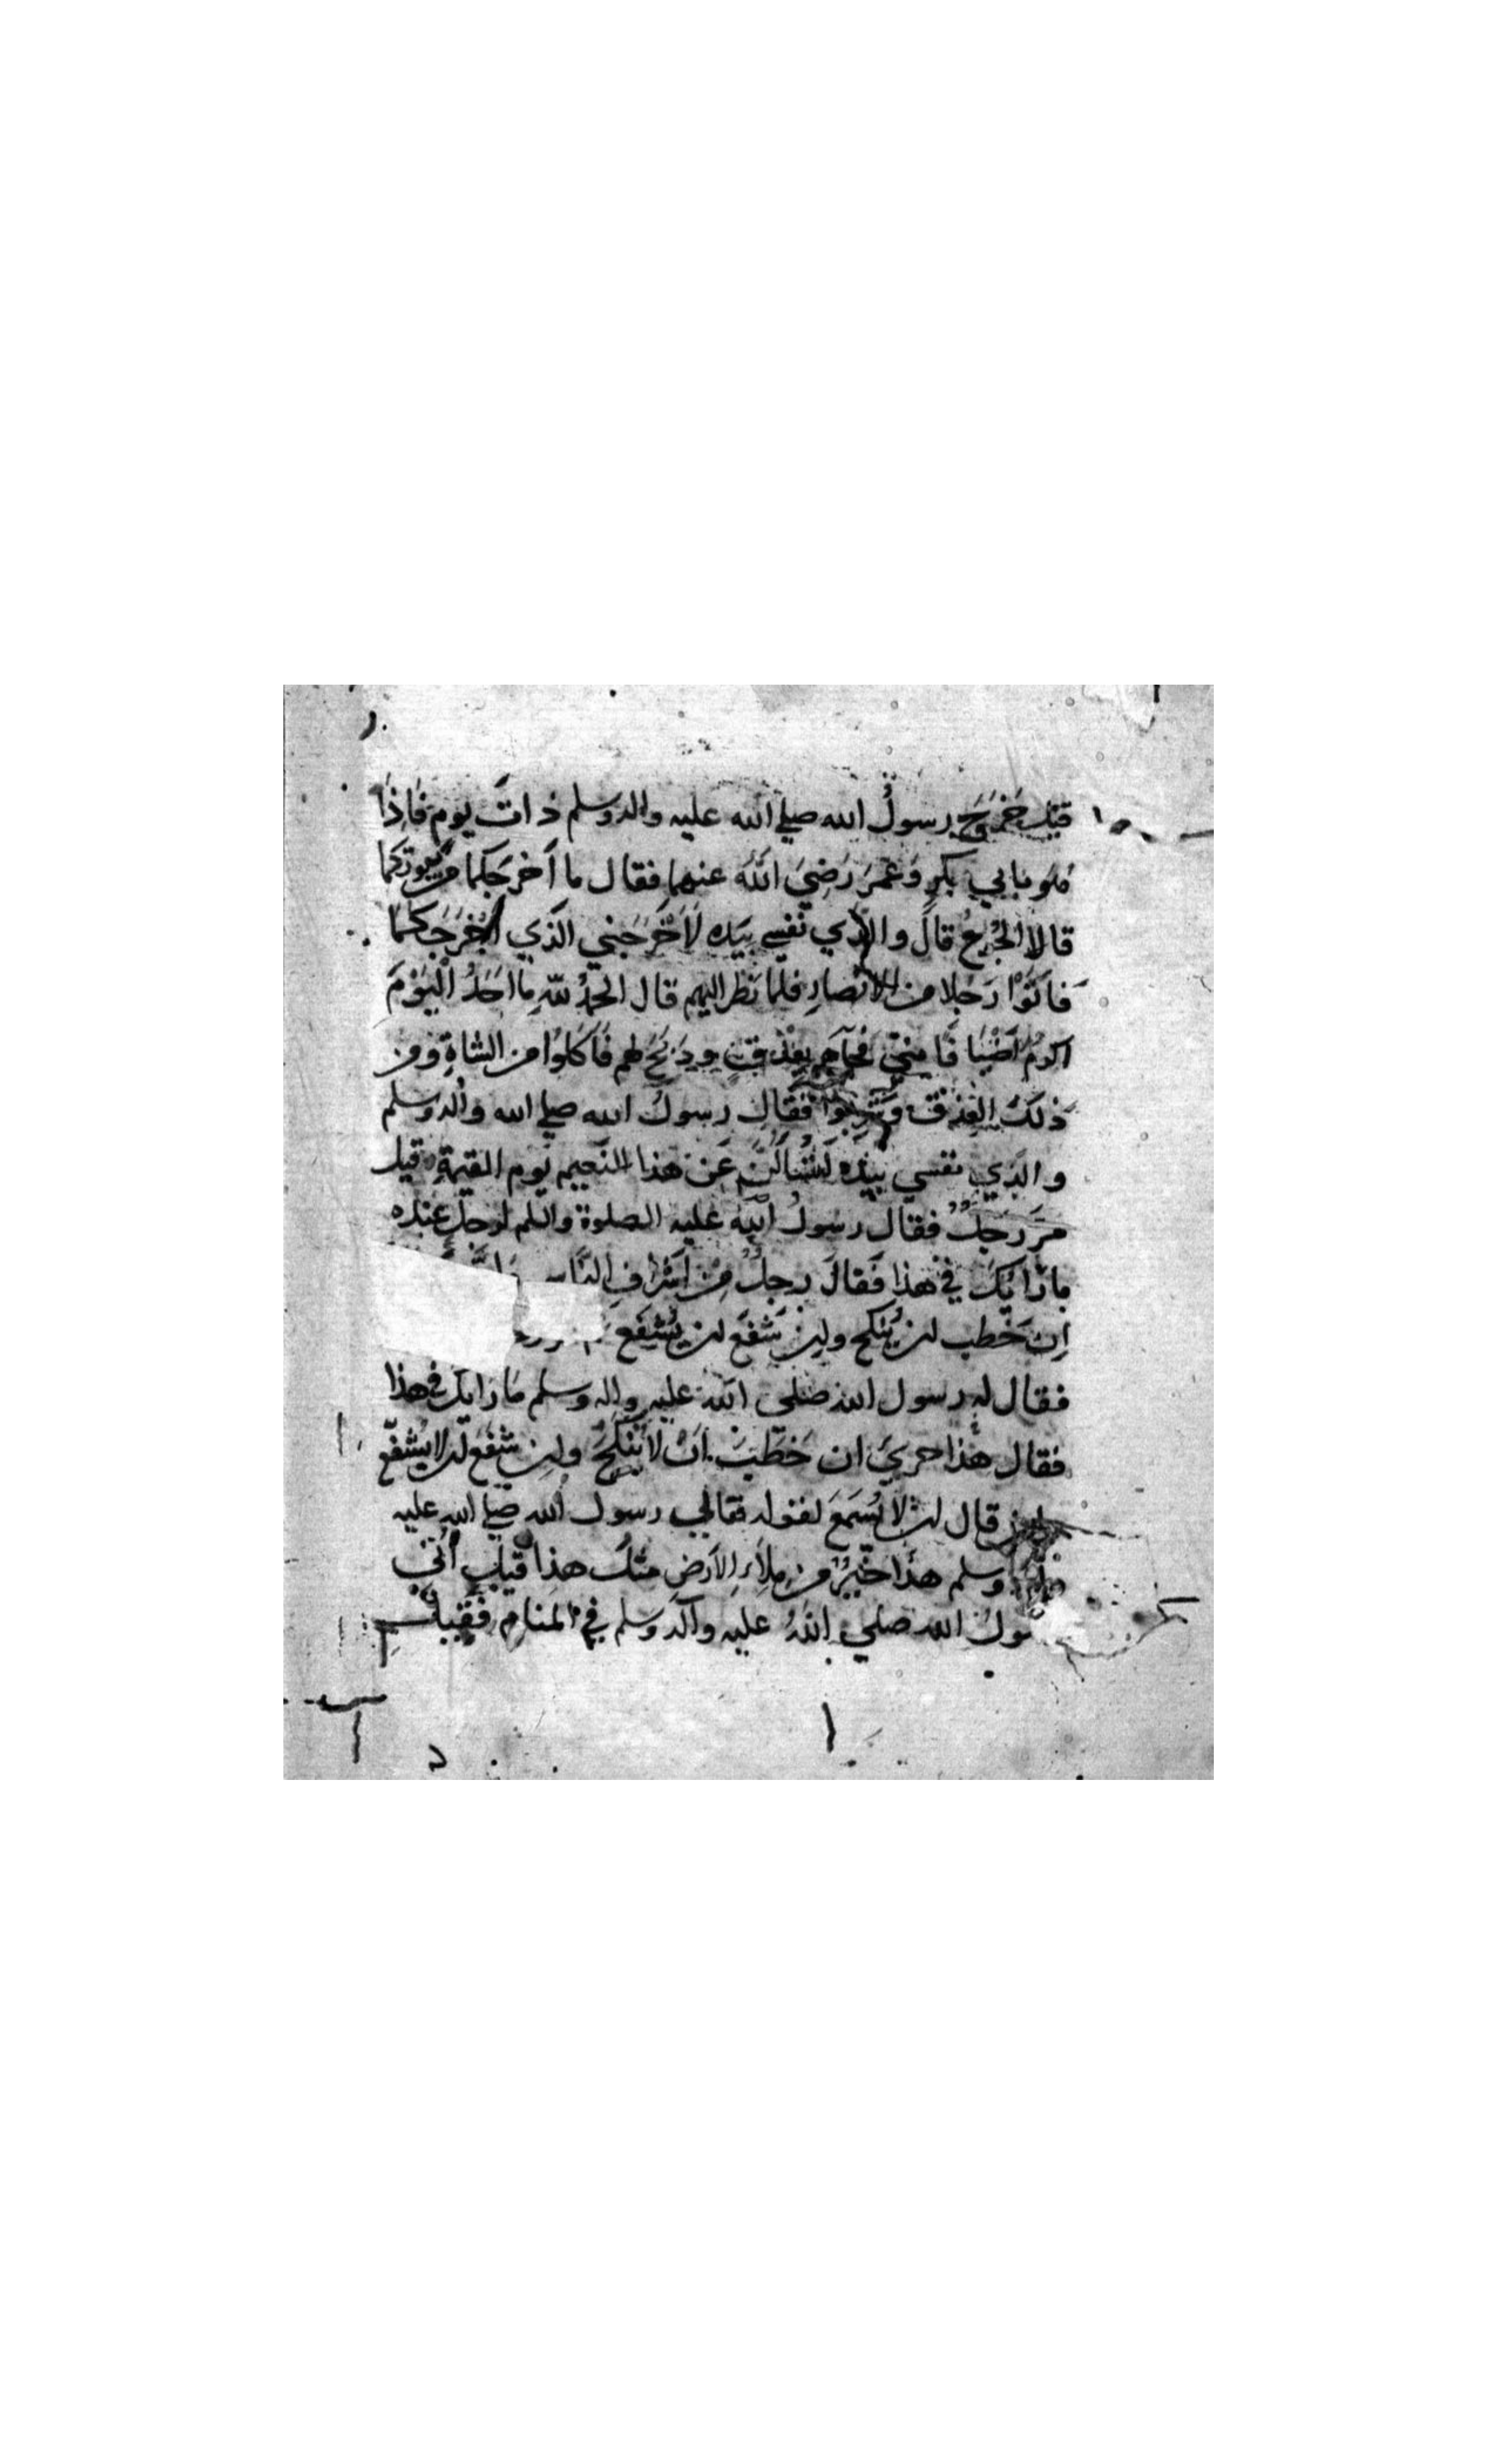 قيل خَرَجَ رسولُ الله صلي الله عليه واله وسلم ذاتَ يوم فَاِذَا
هو بابي بكرٍ وَعُمَرَ رَضِيَ اللهُ عنهما فقال ما اَخرجَكما من بيوتكما
قالا الجُوعُ قالَ والذي نفسي بيَده لَاَخْرَجَني الذي اَخْرَجَكُما
فاتَوْا رَجُلا من الانصارِ فلما نظر اليهم قال الحمدُ للهِ ما اَحَدُ الْيَوْمَ
اكرمُ اَضْيَافا مِنّي فجآءهم بِعْذقٍ وذَبَحَ لهم فَاَكَلُوا من الشاةِ ومن
ذلكَ العِذق وَشَرِبُوا فَقَال رسولُ الله صلي الله واله وسلم
والذي نفسي بيَدِه لَتُسْأَلُنَّ عَن هذا النَّعيم يَوم القيمة قيل
مَرَّ رَجلٌ فقال رسُولُ اللهِ عليه الصلوة والسلم لرجلٍ عنده
ما رَايُكَ في هذا فَقالَ رجلٌ مِن اَشْرافِ النَّاس
اِن خَطب لن يُنكح ولين شَفعَ لن يُشفَع
فقال له رسول الله صلى الله عليه واله وسلم مَا رَايكَ في هذا
فقال هَذا حريَ ان خَطَبَ اَنْ لا يُنكَحَ ولين شفعَ لن لا يُشفّع
قال لن لا يُسمَعَ لقوله فقال لي رسول الله صلي الله عليه
وسلم هَذا خَيْرٌ من مِلْاَءِ الاَرضِ مثلَ هذا قيل اُتيَ
سولُ الله صلي اللهُ عليه وآله وسلم في المَنام فَقيل